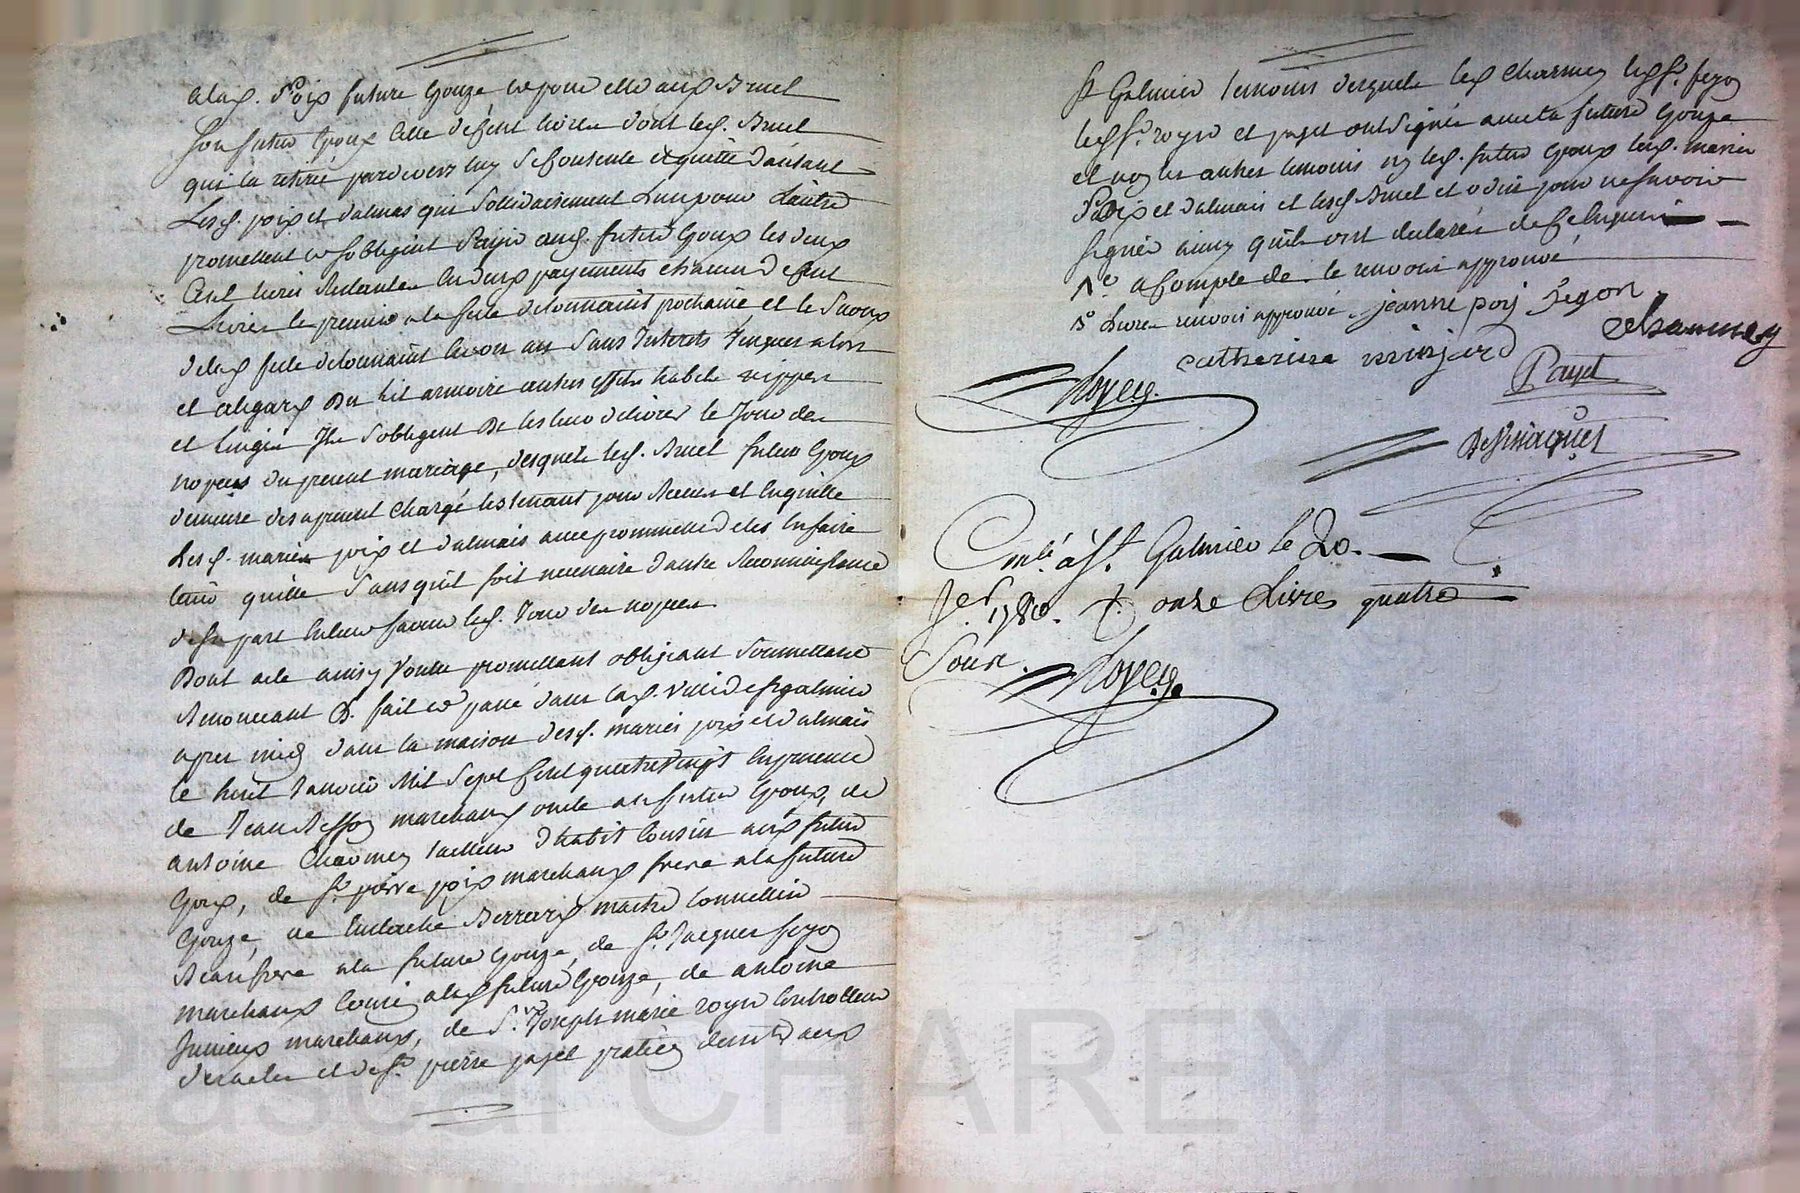 alad. Poix future Epouze ce pour elle aud Bruel
son futur Epoux celle de cent livres dont led. Bruel
qui la retirée pardevers luy se contente et quitte d'autant
lesd. poix et dalmas qui solidairement l'un pour l'autre
promettent et s'obligent payer aud. futur Epoux les deux
cent livres restantes en deux payements chacun de cent
livres le premier a la fete de toussaint prochaine et le second
de lad fete de toussaint en un an sans Interets jusques alors
et alegard du lit armoire autres effets habits nippes
et linges Ils s'obligent de les leur délivrer le Jour des
noyces du present mariage, desquels led. Bruel futur Epoux
demeure des apresent chargé les tenant pour Receus et en quitte
lesd. mariés poix et dalmais avec promesse de les en faire
tenir quitte sans qu'il soit necessaire d'autre Reconnaissance
de sa part autre led. Jour des noyces
Dont acte ainsy voulu promettant obligeant soumettant
Renonceant &. fait et passé dans lad. ville de St galmier
apres midy dans la maison desd. mariés poix et dalmais
le huit Janvier Mil Sept Cent quatrevingt En presence
de Jean marchand oncle au futur Epoux, de
antoine Charmey tailleur d'habit Cousin aux futur
Epoux, de Sr. pierre poix marchand frere a la future
Epouze, de Eustache maitre
Beaufrere a la future Epouze, de Sr. Jacques
marchand Cousin a lad future Epouze, de antoine
marchand, de Sr. Joseph marie royer Controlleur
des actes et de Sr. pierre pajet praticien demt. aud
St Galmier temoins desquels led Charmey led Sr.
led Sr. royer et pajet ont signé avec la future Epouze
et non les autres temoins ny led. futur Epoux lesd. mariés
Poix et dalmais et lesd Bruel et pour ne savoir
signer ainsy qu'ils ont declaré de ce enquis
acompte de. le renvoi approuvé
Livres renvoi approuvé. jeanne poix
charmey
catherine
Royer.
Payet
Conlé. à St. Galmier le 20.
Jer. 1780. R. onze Livres quatre
Sous.
Royer.
Pascal CHAREYRON